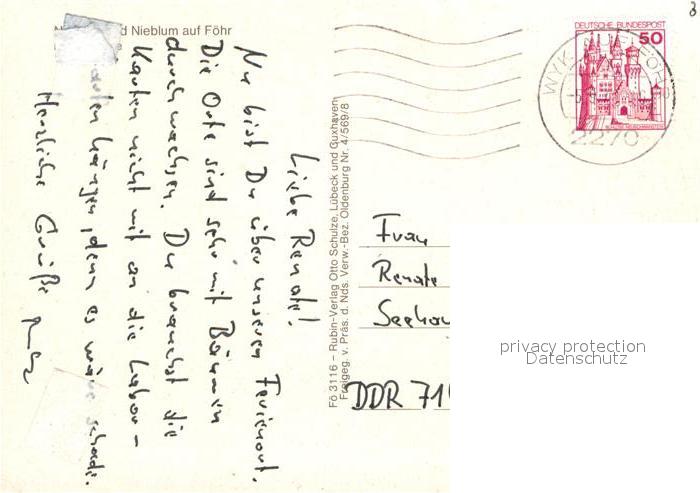 d Nieblum auf Föhr
Liebe Renate!
Nu bist Du über unseren Ferienort.
Die Orte sind sehr mit Bäumen
durchwachsen. Du brauchst die
Karten nicht mit an die Labor-
hängen, denn es wäre schade.
Herzliche Grüße
Fö 3116 – Rubin-Verlag Otto Schulze, Lübeck und Cuxhaven
Freigeg. v. Präs. d. Nds. Verw.-Bez. Oldenburg Nr. 4/569/8
DEUTSCHE BUNDESPOST
50
WYK
2270
Frau
Renate
DDR 71
privacy protection
Datenschutz
8